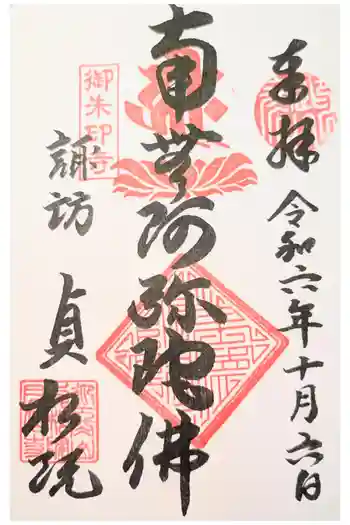 奉拝
令和六年十月六日
南無阿弥陀佛
御朱印寺
諏訪
貞松院